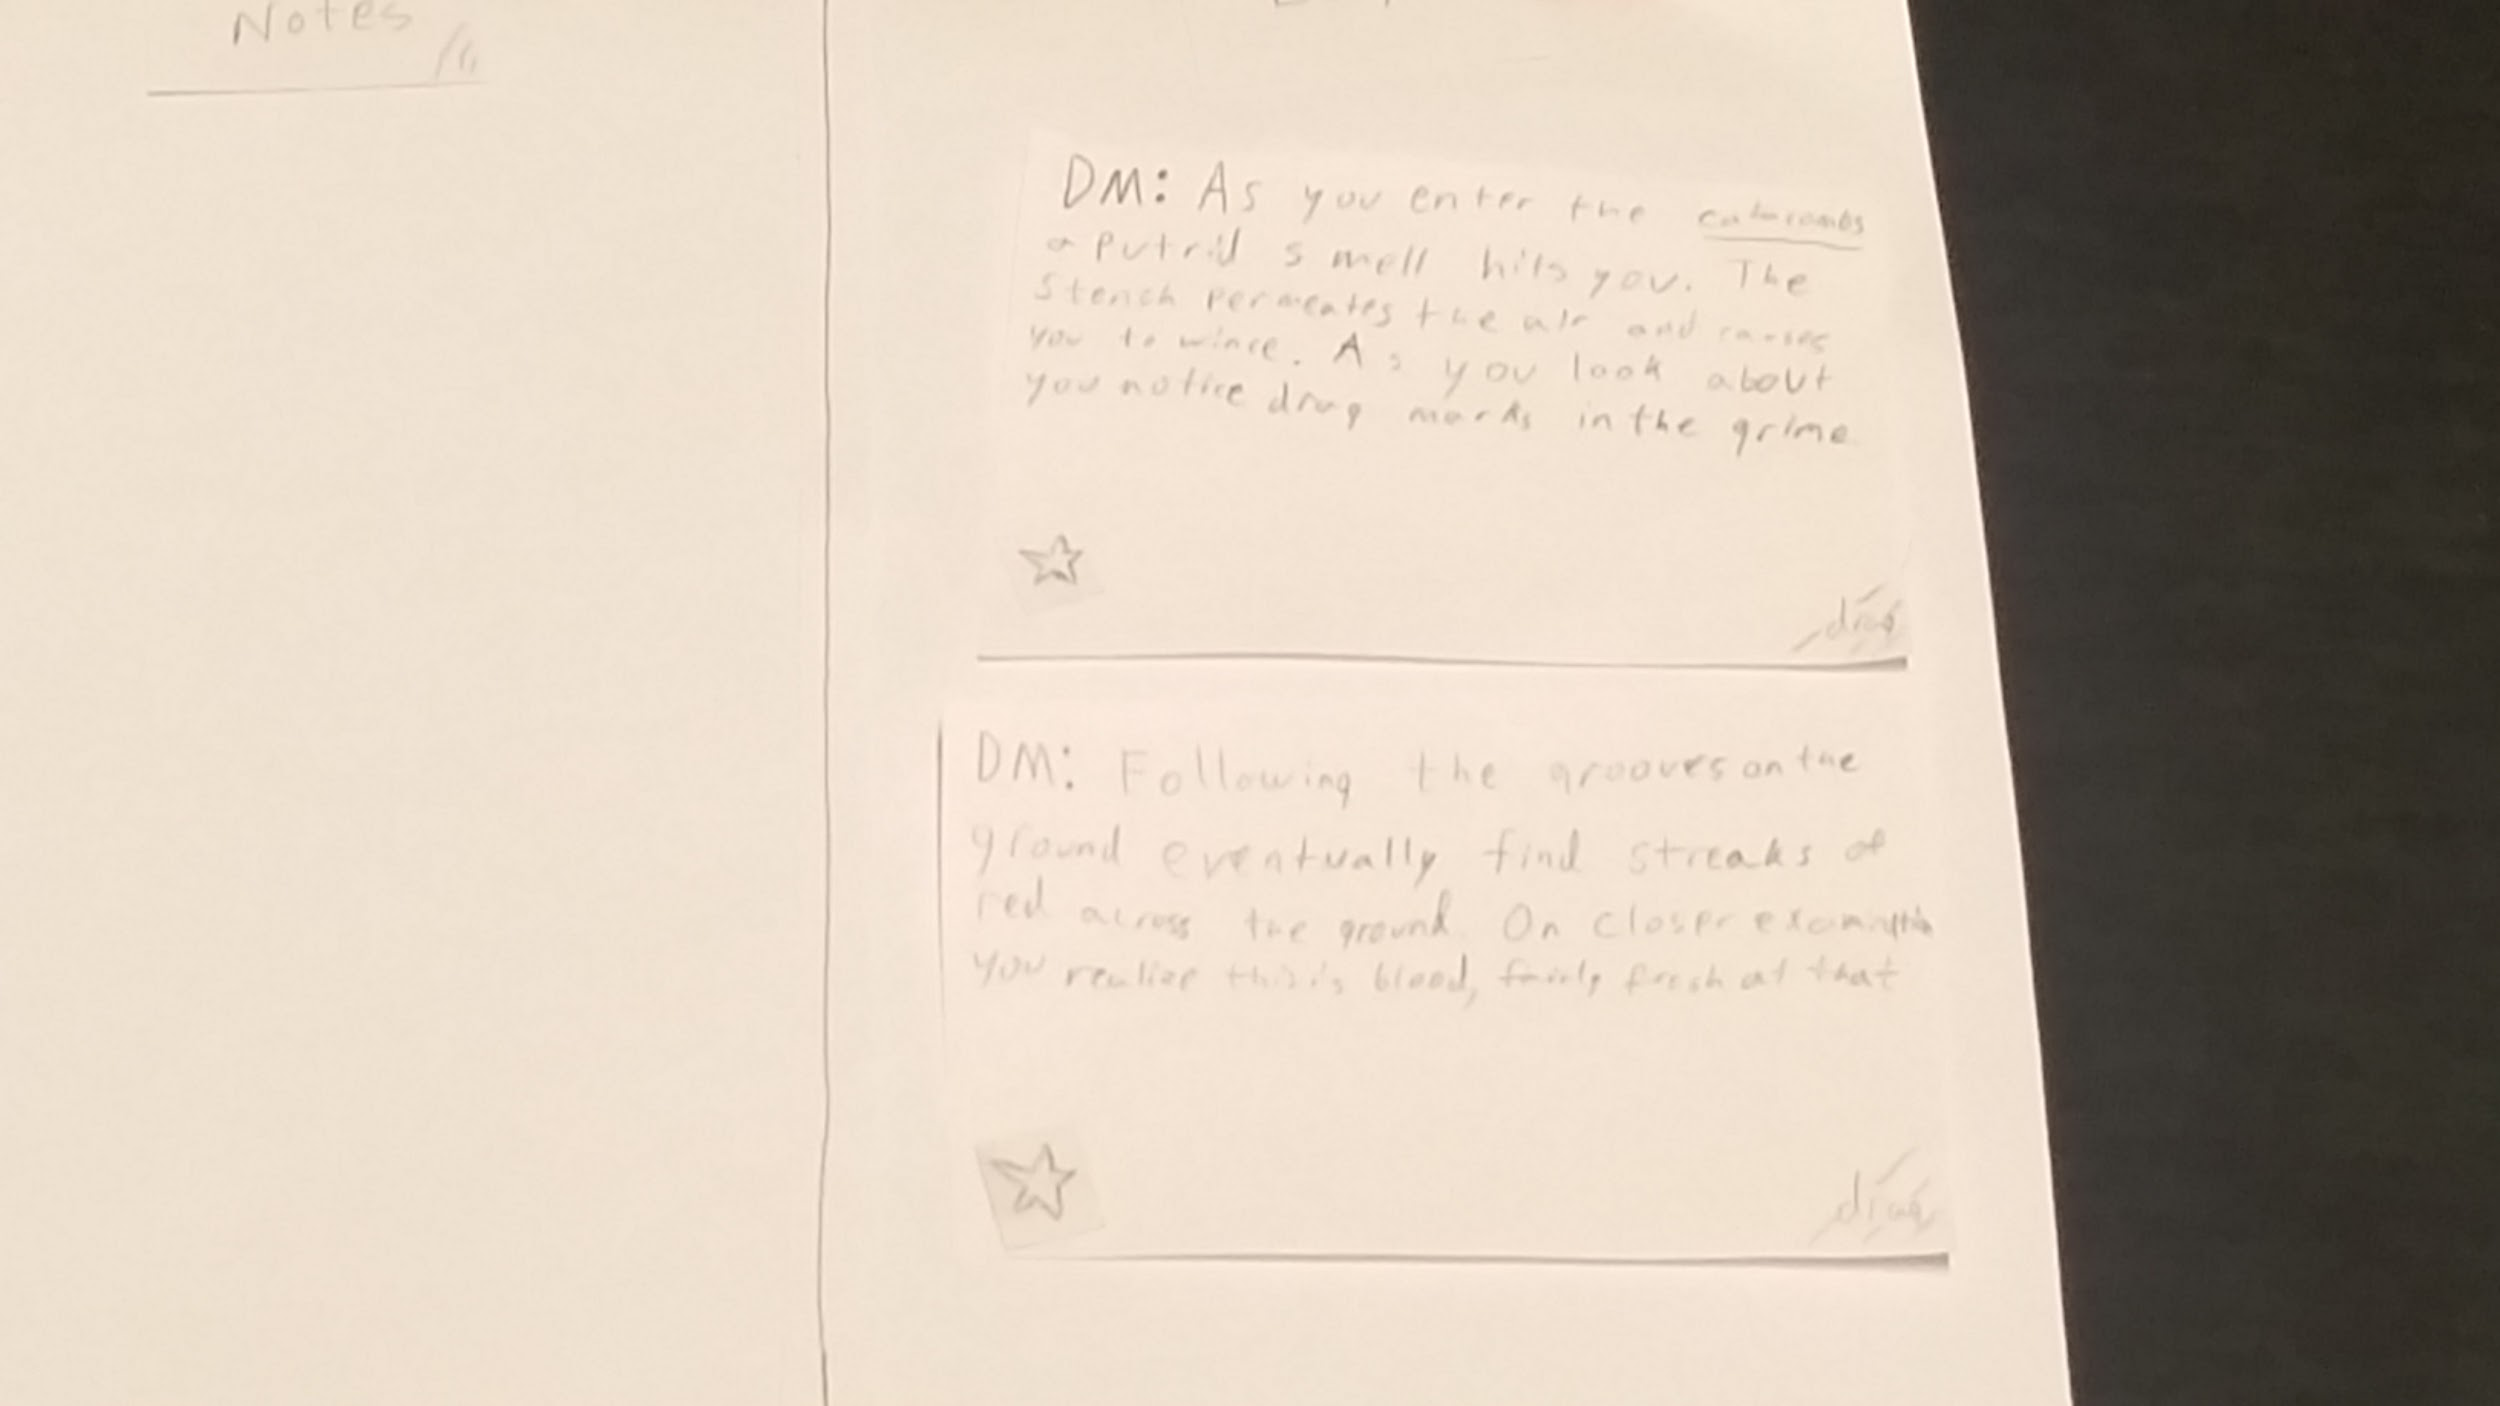 Notes
DM: As you enter the catacombs
a putrid smell hits you. The
stench permeates the air and causes
you to wince. As you look about
you notice drag marks in the grime
drag
DM: Following the grooves on the
ground eventually find streaks of
red across the ground. On closer examination
you realize this is blood, fairly fresh at that
drag